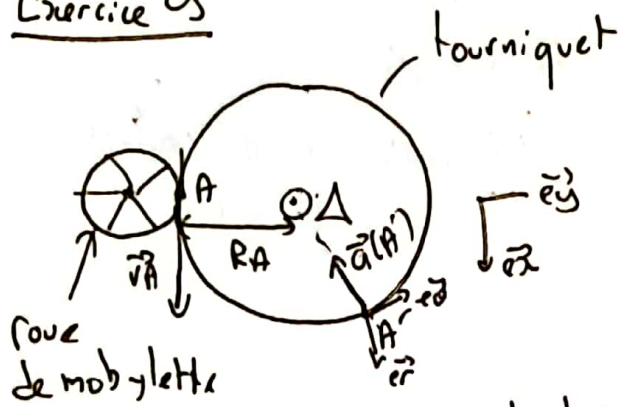 Exercice 9
tourniquet
A
Δ
RA
a⃗(A')
e⃗y
e⃗x
v⃗A
e⃗θ
A'
e⃗r
roue
de mobylette